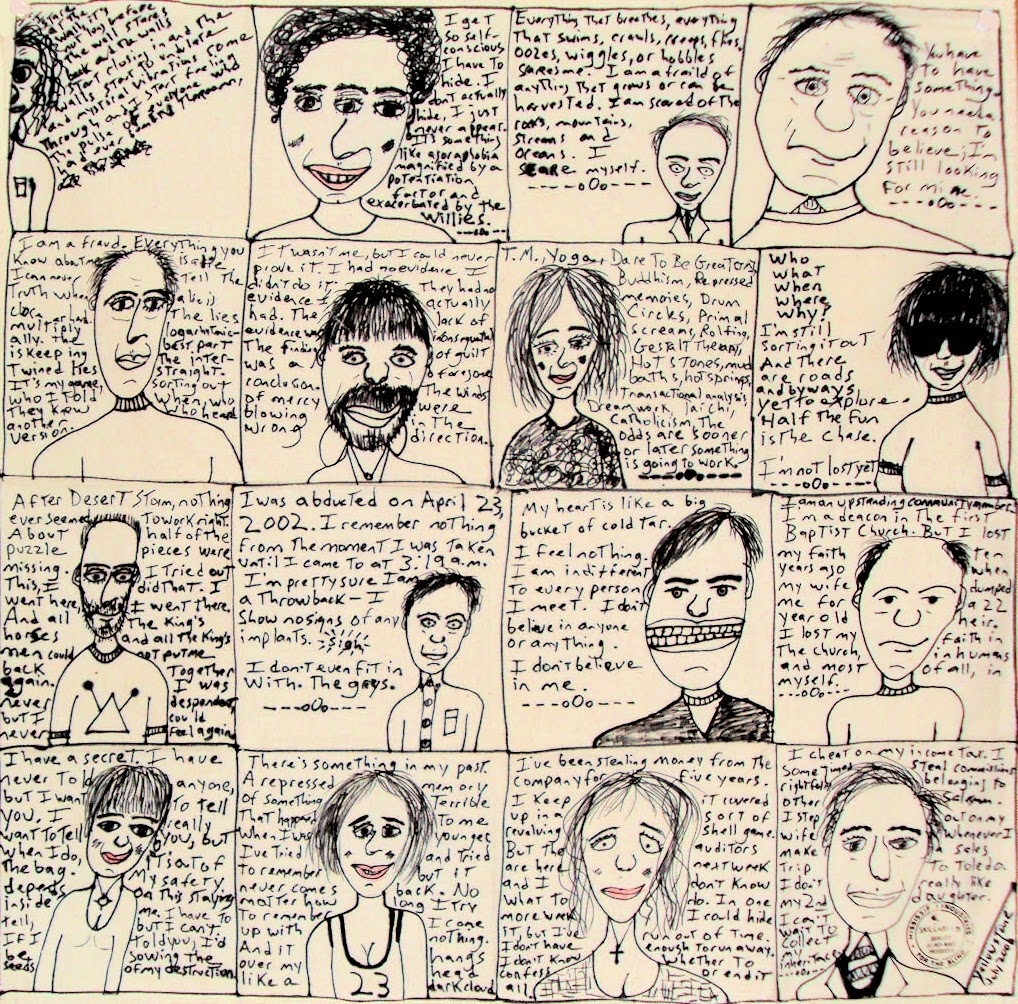 I stare
at the
wall. It's
not long before
the wall stares
back and the walls
start closing in and the
walls start to undulate
and mystical vibrations come
through and I start feeling
the pulse of everyone who
has ever
I get
so self-
conscious
I have to
hide. I
don't actually
hide, I just
never appear.
It's something
like agoraphobia
magnified by a
potentiation
factor and
exacerbated by the
willies.
Everything that breathes, everything
that swims, crawls, creeps, flies,
oozes, wiggles, or hobbles
scares me. I am afraid of
anything that grows or can be
harvested. I am scared of the
rocks, mountains,
streams and
oceans. I
scare myself.
----oOo----
You have
to have
something.
You need a
reason to
believe; I'm
still looking
for mine.
---oOo---
I am a fraud. Everything you
know about me is a lie.
I can never tell the
truth when a lie is
closer at hand. The lies
multiply logarithmic-
ally. The best part
is keeping the inter-
twined lies straight.
It's my game, sorting out
who I told when, who
they knew who heard
another
version.
It wasn't me, but I could never
prove it. I had no evidence I
didn't do it. They had no
evidence I actually
had. The lack of
evidence was inconsequential
The finding of guilt
was a foregone
conclusion. The winds
of mercy were
blowing in the
wrong direction.
T.M., Yoga, Dare To Be Great
Buddhism, Repressed
memories, Drum
Circles, Primal
screams, Rolfing,
Gestalt Therapy,
Hot Stones, mud
baths, hot springs,
Transactional analysis
Dreamwork, Tai Chi,
Catholicism, The
odds are sooner
or later something
is going to work.
Who
what
when
where,
why?
I'm still
sorting it out
And there
are roads
and byways
yet to explore.
Half the fun
is the chase.
I'm not lost yet
After Desert Storm, nothing
ever seemed to work right.
About half of the
puzzle pieces were
missing. I tried out
this, I did that. I
went here, I went there.
And all the King's
horses and all the King's
men could not put me
back together
again. I was
never despondent
but I could
never feel again
I was abducted on April 23,
2002. I remember nothing
from the moment I was taken
until I came to at 3:19 a.m.
I'm pretty sure I am
a throwback – I
show no signs of any
implants. Sigh
I don't even fit in
with the grays.
---oOo---
My heart is like a big
bucket of cold tar.
I feel nothing.
I am indifferent
to every person
I meet. I don't
believe in anyone
or anything.
I don't believe
in me.
---oOo---
I am an upstanding community member.
I'm a deacon in the first
Baptist Church. But I lost
my faith ten
years ago when
my wife dumped
me for a 22
year old heir.
I lost my faith in
the church, in humans
and most of all, in
myself.
---oOo---
I have a secret. I have
never told anyone,
but I want to tell
you. I really
want to tell you, but
when I do, it's out of
the bag. My safety
depends on this staying
inside me. I have to
tell, but I can't.
If I told you, I'd
be sowing the
seeds of my destruction.
There's something in my past.
A repressed memory
of something terrible
that happened to me
when I was younger
I've tried and tried
to remember but it
never comes back. No
matter how long I try
to remember I come
up with nothing.
And it hangs
over my head
like a dark cloud
23
I've been stealing money from the
company for five years.
I keep it covered
up in a sort of
revolving shell game.
But the auditors
are here next week
and I don't know
what to do. In one
more week I could hide
it, but I've run out of time.
I don't have enough to run away.
I don't know whether to
confess or end it
all.
I cheat on my income tax. I
sometimes steal commissions
rightfully belonging to
other salesmen.
I step out on my
wife whenever I
make a sales
trip to Toledo.
I don't really like
my 2nd daughter.
I can't
wait to
collect
my
inheritance
FOR THE BLIND
July 2006